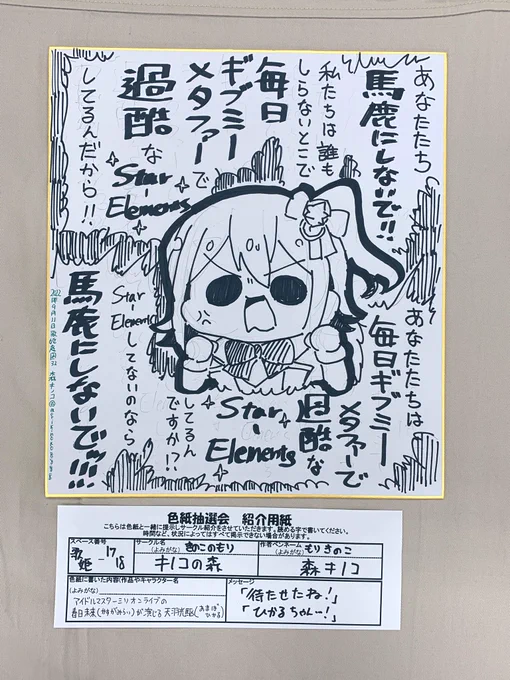 あなたたち
馬鹿にしないで!!
私たちは誰も
しらないとこで
毎日
ギブミー
メタファーで
過酷な
Star-
Elements
してるんだから!!
あなたたちは
毎日ギブミー
メタファーで
過酷な
Star-
Elements
してるん
ですか!?
Star-
Elements
してないのなら
馬鹿にしないで!!!
色紙抽選会 紹介用紙
こちらは色紙と一緒に提示しサークル紹介をさせていただきます。読める字で書いてください。
時間など、状況によってはすべて掲示できない場合があります。
スペース番号
歌姫-17 18
サークル名
(よみがな) きのこのもり
キノコの森
作者ペンネーム
(よみがな) もりきのこ
森キノコ
色紙に書いた内容(作品やキャラクター名)
(よみがな)
アイドルマスターミリオンライブの
春日未来(かすがみらい)が演じる天羽
メッセージ
「待たせたね!」
「ひかるちゃん…!」